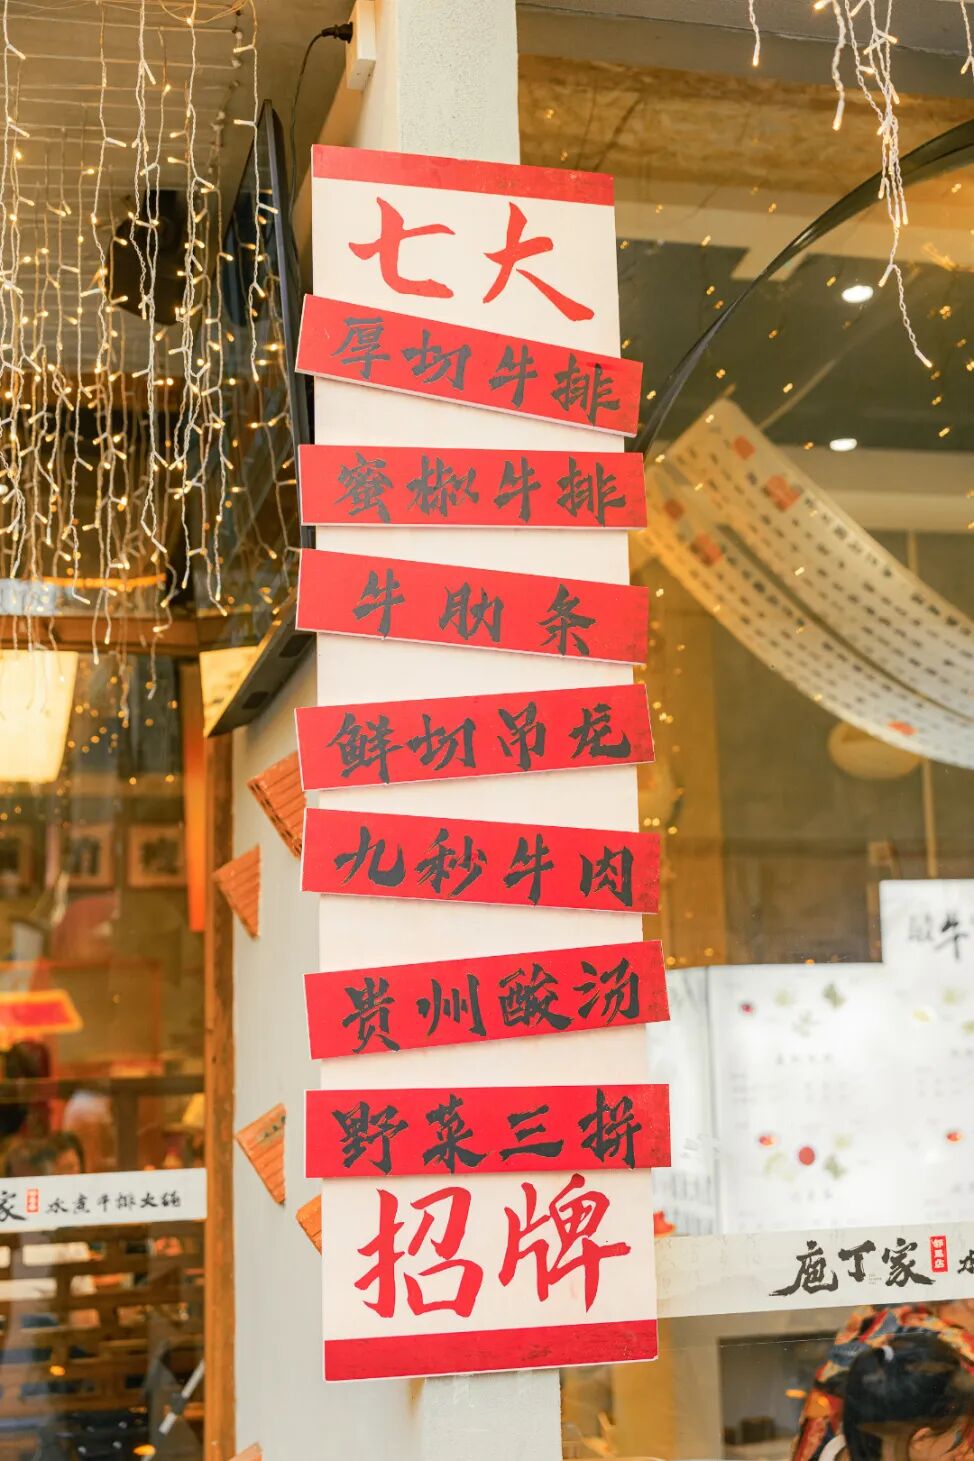 七大
厚切牛排
蜜椒牛排
牛肋条
鲜切吊龙
九秒牛肉
贵州酸汤
野菜三拼
招牌
家 水煮牛排火锅
庖丁家